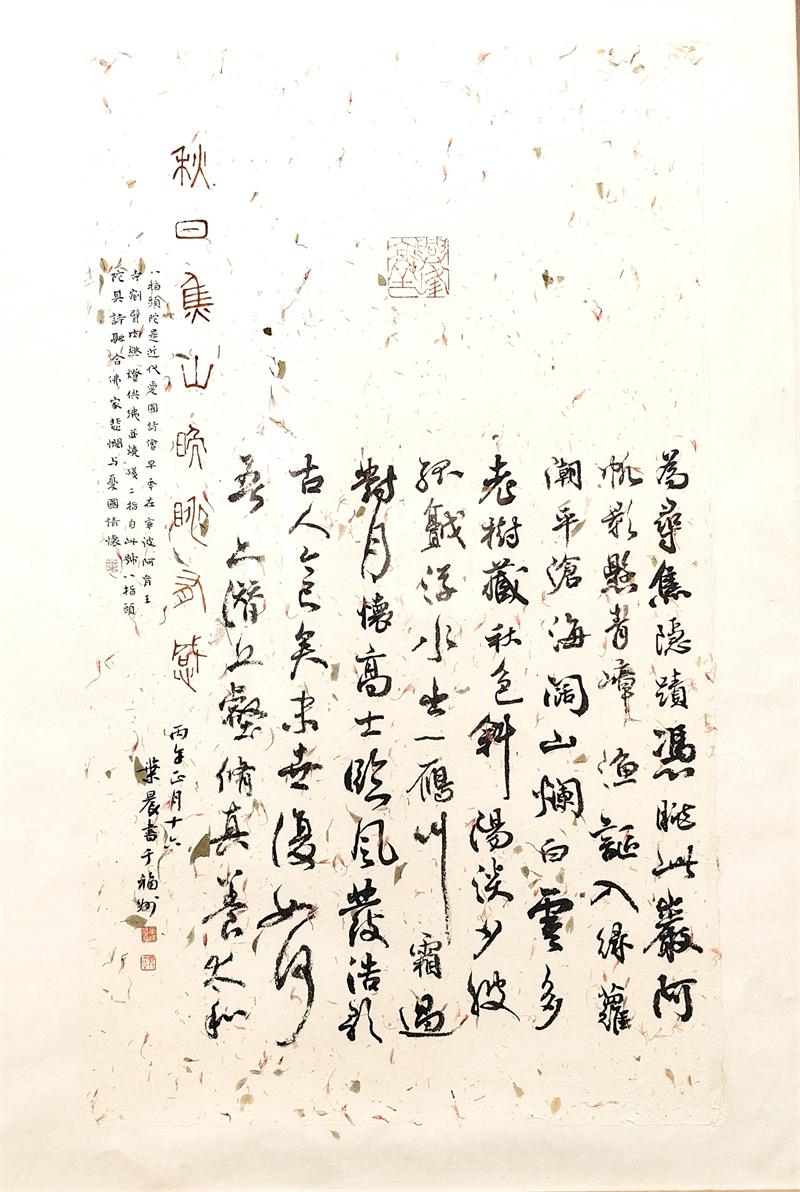 為尋焦隱蹟馮眺此巖阿
帆影懸青嶂漁謳入綠蘿
潮平滄海闊山爛白雲多
老樹藏秋色斜陽淡夕波
孤浮水出一雁叫霜過
對月懷高士臨風發浩歌
古人今已矣末世復如何
吾亦潛丘壑脩真養太和
秋日焦山晚眺有感
八指頭陀是近代愛國詩僧早年在寧波阿育王
寺剜臂肉燃燈供佛並燒殘二指自此號八指頭
陀其詩融合佛家悲憫与憂國情懷
丙午正月十六
葉晨書于福州